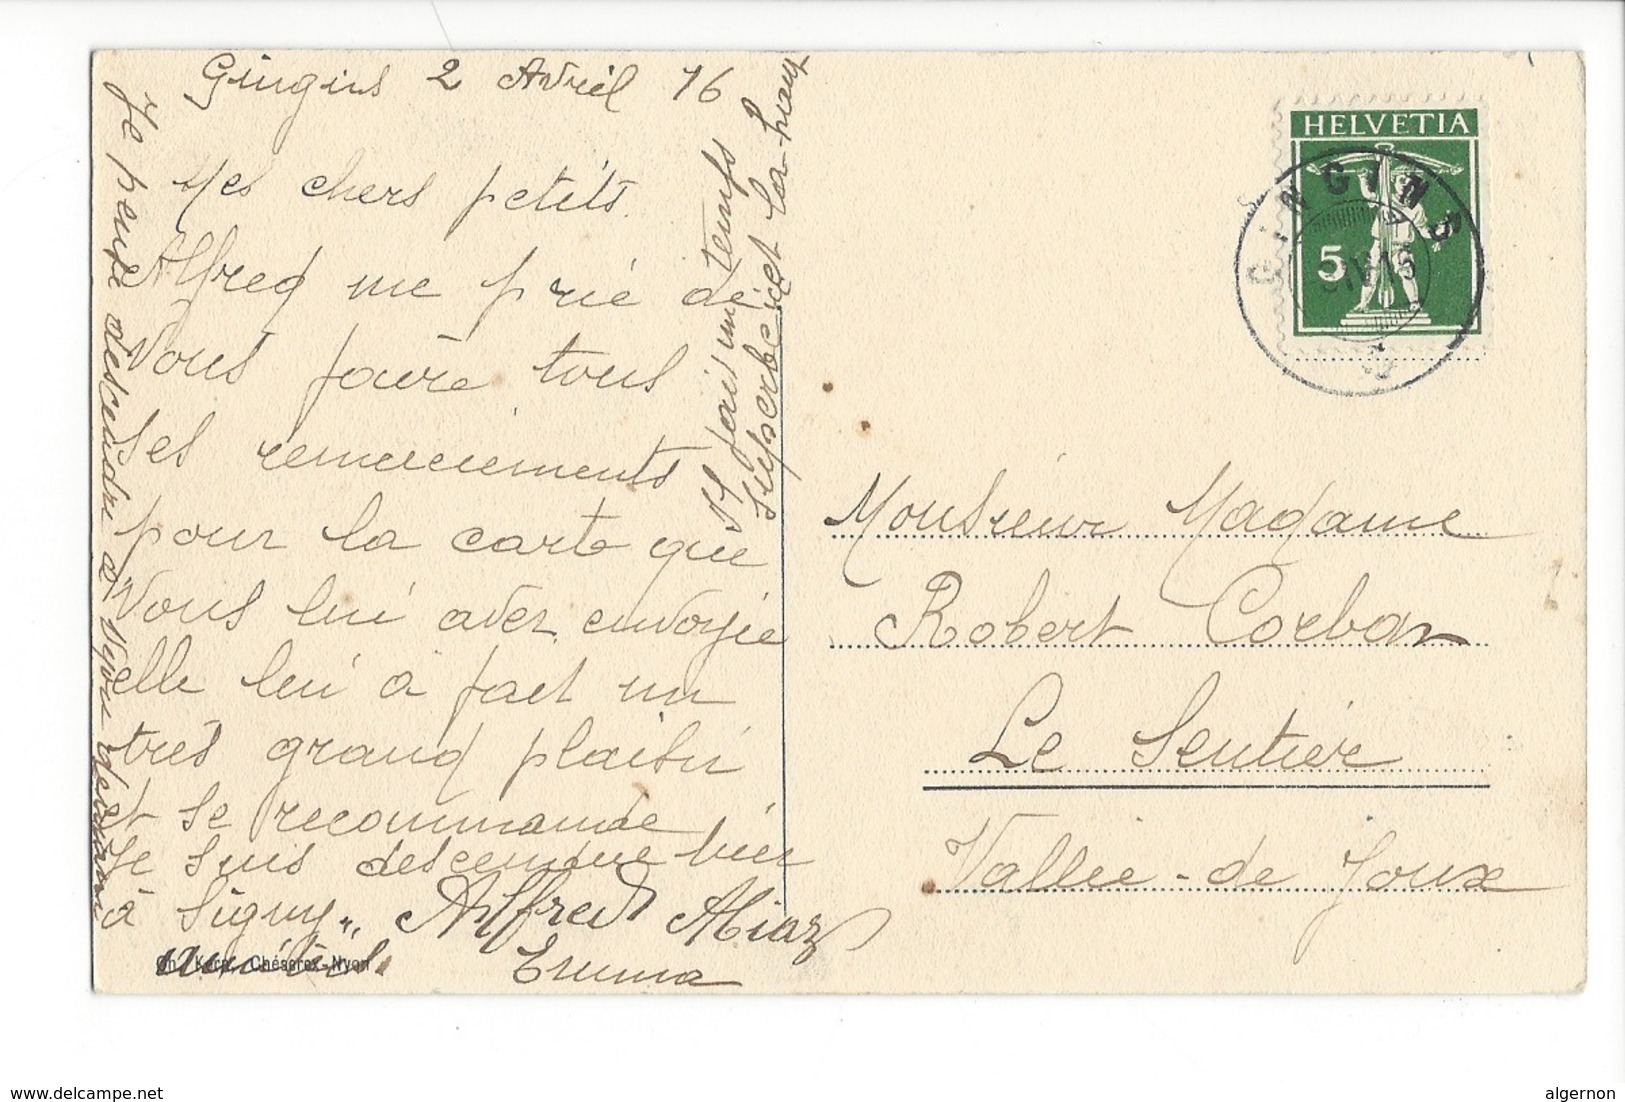 Gingins 2 Avril 16
Mes chers petits.
Alfred me prie de
Vous faire tous
ses remerciements
pour la carte que
Vous lui avez envoyée
elle lui à fait un
très grand plaisir
et se recommande
Je suis descendue hier
à Signy
Alfred Miaz
Emma
Je pense descendre à Nyon demain
Il fais un temps
superbe ici et la-haut
Ch. Kern, Chéserex-Nyon
HELVETIA
5
GINGINS
IV.16
Monsieur Madame
Robert Corbaz
Le Sentier
Vallée-de Joux
www.delcampe.net
algernon